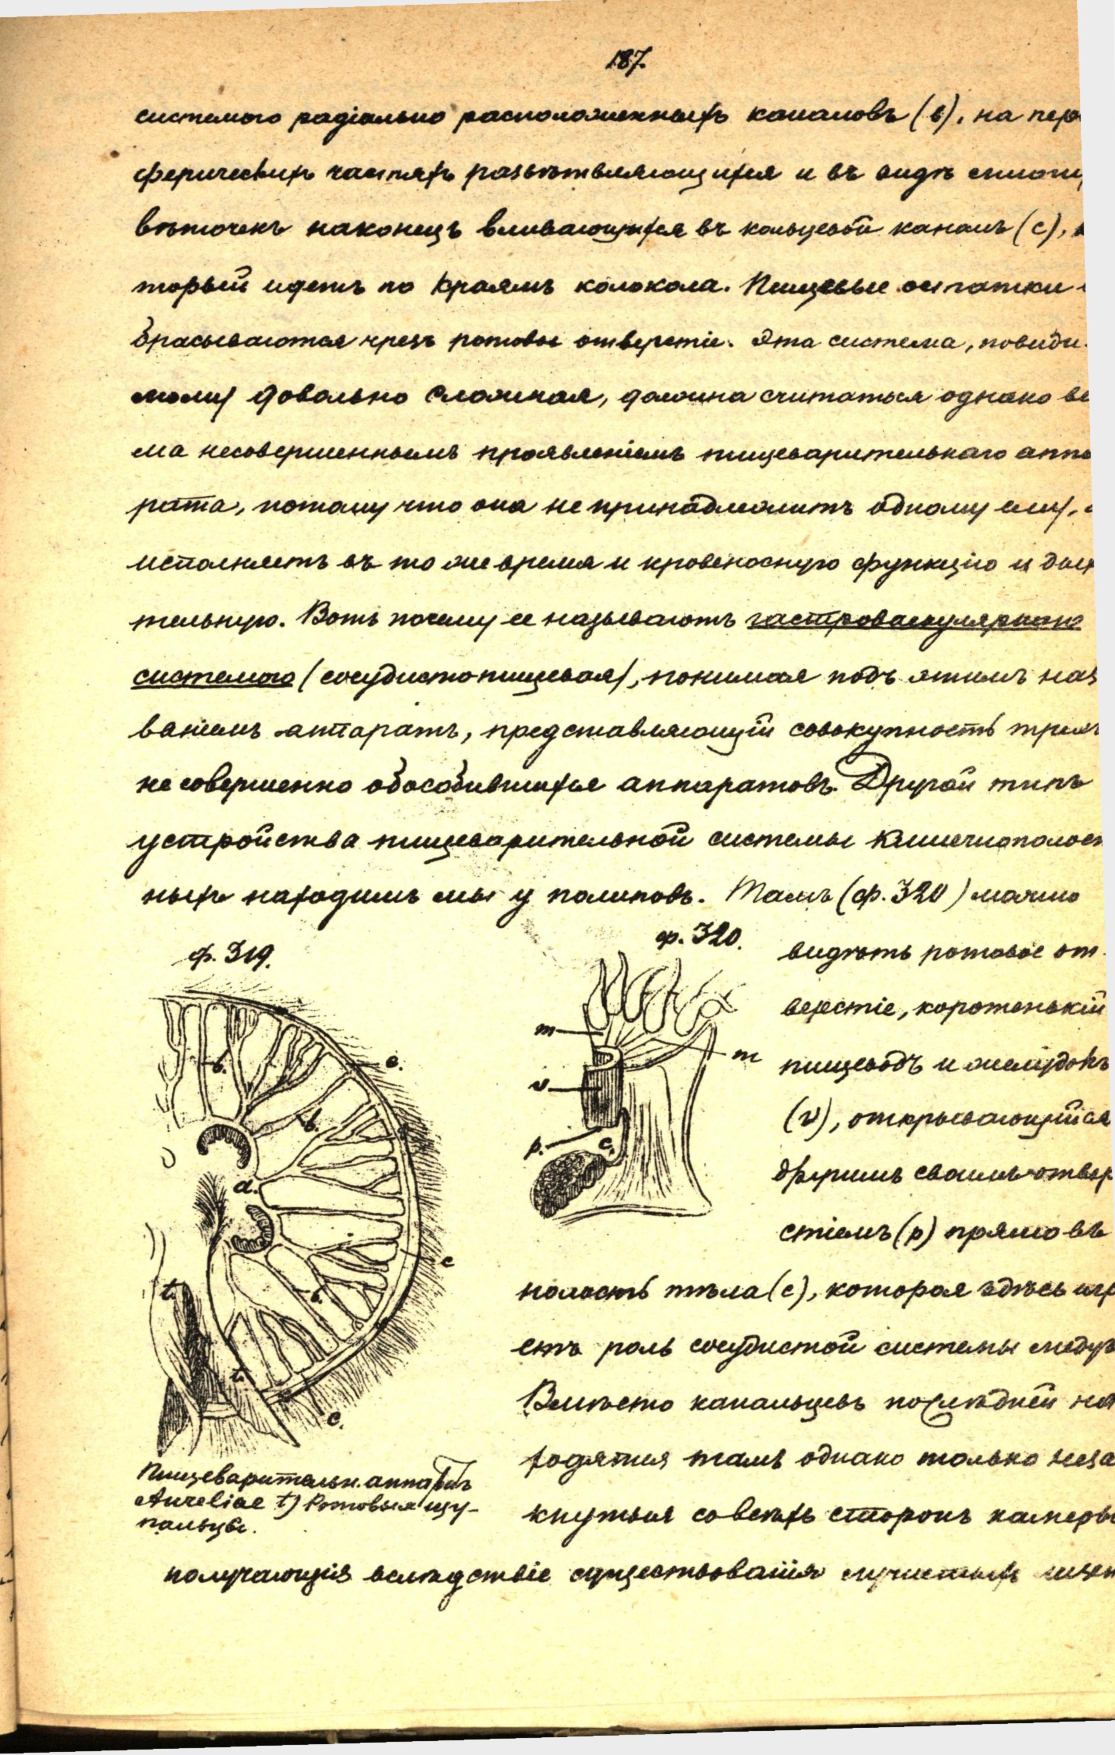 187.
системою радіально расположенныхъ каналовъ (в), на пери
ферическихъ частяхъ развѣтвляющихся и въ видѣ
вѣточекъ наконецъ вливающихся въ кольцевой каналъ (с), к
торый идетъ по краямъ колокола. Пищевые остатки
брасываются чрезъ ротовое отверстіе. Эта система, повиди-
мому довольно сложная, должна считаться однако ве
ма несовершеннымъ проявленіемъ пищеварительнаго аппа
рата, потому что она не принадлежитъ одному ему, а
исполняетъ въ то же время и кровеносную функцію и дых
тельную. Вотъ почему ее называютъ гастроваскулярною
системою (сосудистопищевая), понимая подъ этимъ наз
ваніемъ аппаратъ, представляющій совокупность трехъ
не совершенно обособившихся аппаратовъ. Другой типъ
устройства пищеварительной системы кишечнополост
ныхъ находимъ мы у полиповъ. Тамъ (ф. 320) можно
ф. 319.
ф. 320.
видѣть ротовое от-
верстіе, коротенькій
пищеводъ и желудокъ
(v), открывающійся
другимъ своимъ отвер
стіемъ (p) прямо въ
полость тѣла (с), которая здѣсь игр
етъ роль сосудистой системы медуз
Вмѣсто канальцевъ послѣдней на
ходятся тамъ однако только неза
кнутыя со всѣхъ сторонъ камеры
получающія вслѣдствіе существованія лучистыхъ
в.
с.
в.
a.
c
в.
t.
t.
c.
m
m
v
p.
c.
Пищеварительн. аппаратъ
Aureliae t) Ротовыя щу-
пальцы.